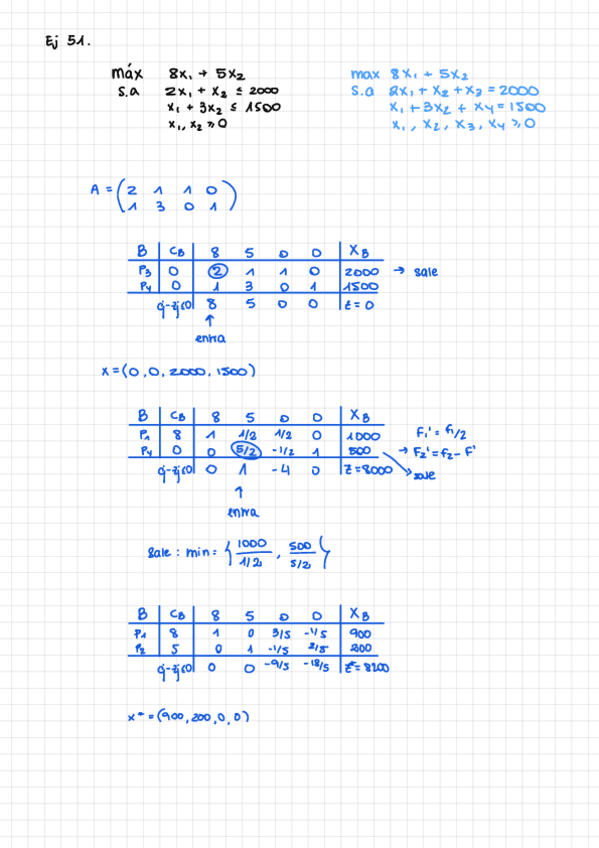 Ej 51.
máx 8x₁ + 5x₂
s.a 2x₁ + x₂ ≤ 2000
x₁ + 3x₂ ≤ 1500
x₁, x₂ ≥ 0
max 8x₁ + 5x₂
s.a 2x₁ + x₂ + x₃ = 2000
x₁ + 3x₂ + x₄ = 1500
x₁, x₂, x₃, x₄ ≥ 0
A = (2 1 1 0
1 3 0 1)
B C_B 8 5 0 0 X_B
P₃ 0 2 1 1 0 2000 → sale
P₄ 0 1 3 0 1 1500
cj-zj≤0 8 5 0 0 z=0
↑
entra
x=(0,0,2000,1500)
B C_B 8 5 0 0 X_B
P₁ 8 1 1/2 1/2 0 1000 F₁' = f₁/2
P₄ 0 0 5/2 -1/2 1 500 → F₂' = f₂ - F'
cj-zj≤0 0 1 -4 0 z=8000 sale
↑
entra
Sale : min = { 1000/1/2 , 500/5/2 }
B C_B 8 5 0 0 X_B
P₁ 8 1 0 3/5 -1/5 900
P₂ 5 0 1 -1/5 2/5 200
cj-zj≤0 0 0 -9/5 -18/5 z*=8200
x* = (900, 200, 0, 0)